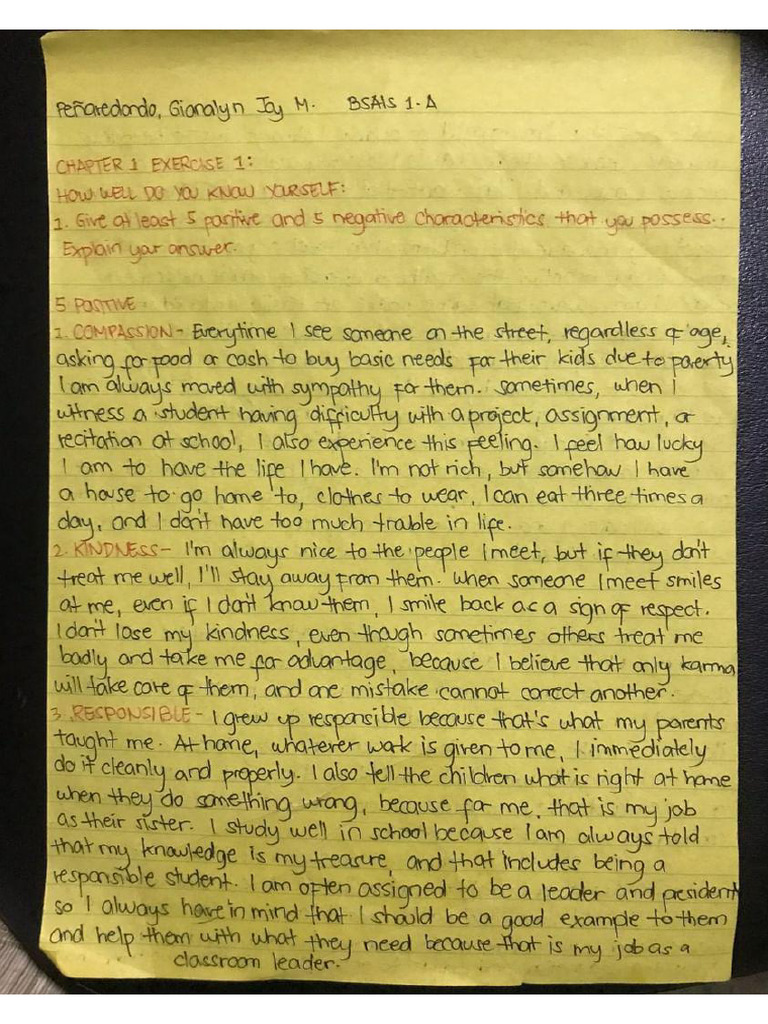 Peñaredondo, Gianalyn Joy M. BSAIS 1-A
CHAPTER 1 EXERCISE 1:
HOW WELL DO YOU KNOW YOURSELF:
1. Give at least 5 positive and 5 negative characteristics that you possess.
Explain your answer.
5 POSITIVE
1. COMPASSION - Everytime I see someone on the street, regardless of age,
asking for food or cash to buy basic needs for their kids due to poverty
I am always moved with sympathy for them. Sometimes, when I
witness a student having difficulty with a project, assignment, or
recitation at school, I also experience this feeling. I feel how lucky
I am to have the life I have. I'm not rich, but somehow I have
a house to go home to, clothes to wear, I can eat three times a
day, and I don't have too much trouble in life.
2. KINDNESS - I'm always nice to the people I meet, but if they don't
treat me well, I'll stay away from them. When someone I meet smiles
at me, even if I don't know them, I smile back as a sign of respect.
I don't lose my kindness, even though sometimes others treat me
badly and take me for advantage, because I believe that only karma
will take care of them, and one mistake cannot correct another.
3. RESPONSIBLE - I grew up responsible because that's what my parents
taught me. At home, whatever work is given to me, I immediately
do it cleanly and properly. I also tell the children what is right at home
when they do something wrong, because for me, that is my job
as their sister. I study well in school because I am always told
that my knowledge is my treasure, and that includes being a
responsible student. I am often assigned to be a leader and president
so I always have in mind that I should be a good example to them
and help them with what they need because that is my job as a
classroom leader.